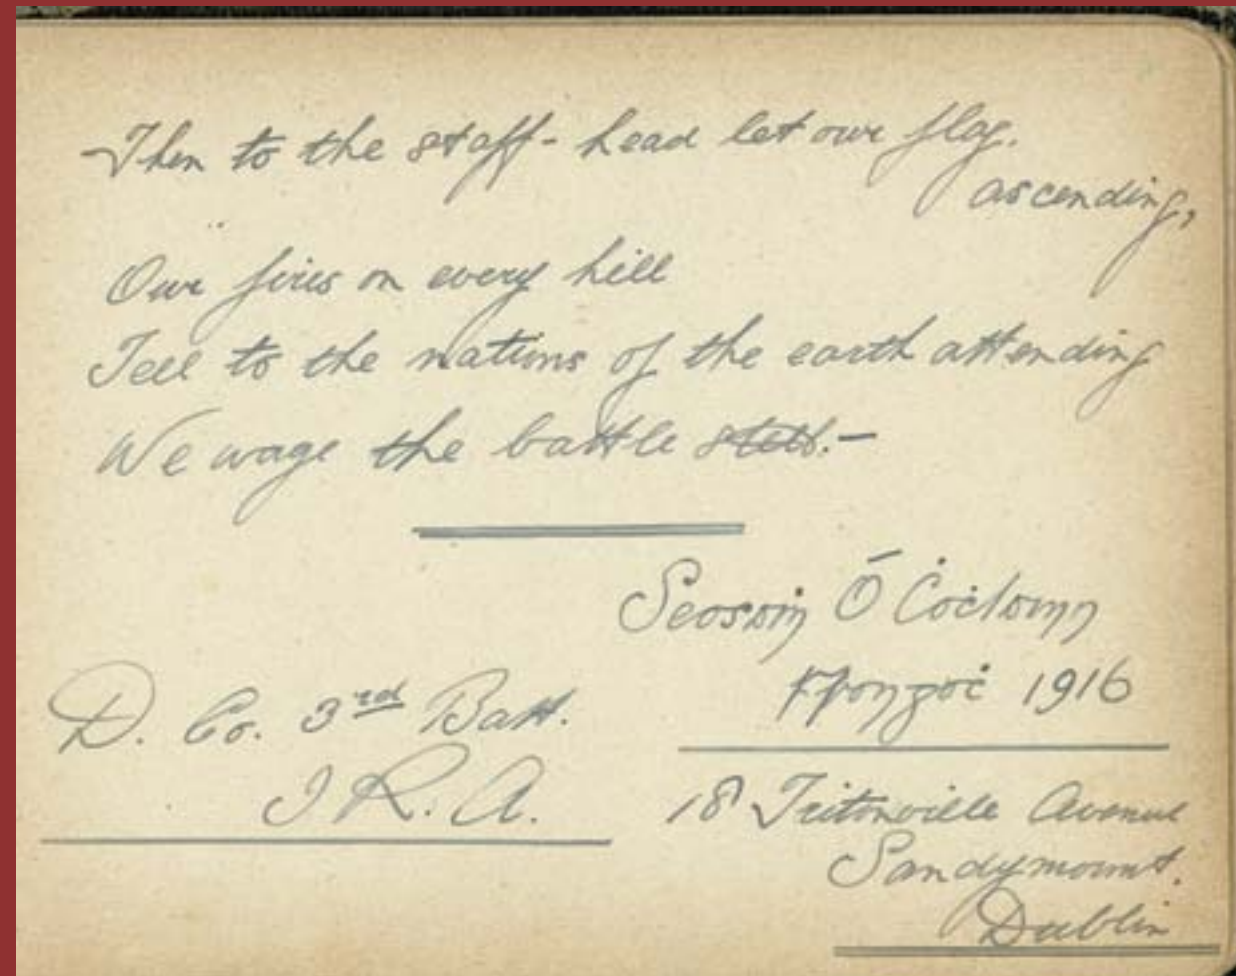 Then to the staff-head let our flag.
ascending,
Our fires on every hill
Tell to the nations of the earth attending
We wage the battle still.—
Ó Ċoċlainn
Frongoċ 1916
D. Co. 3rd Batt.
I R. A.
18 Tritonville Avenue
Sandymount.
Dublin